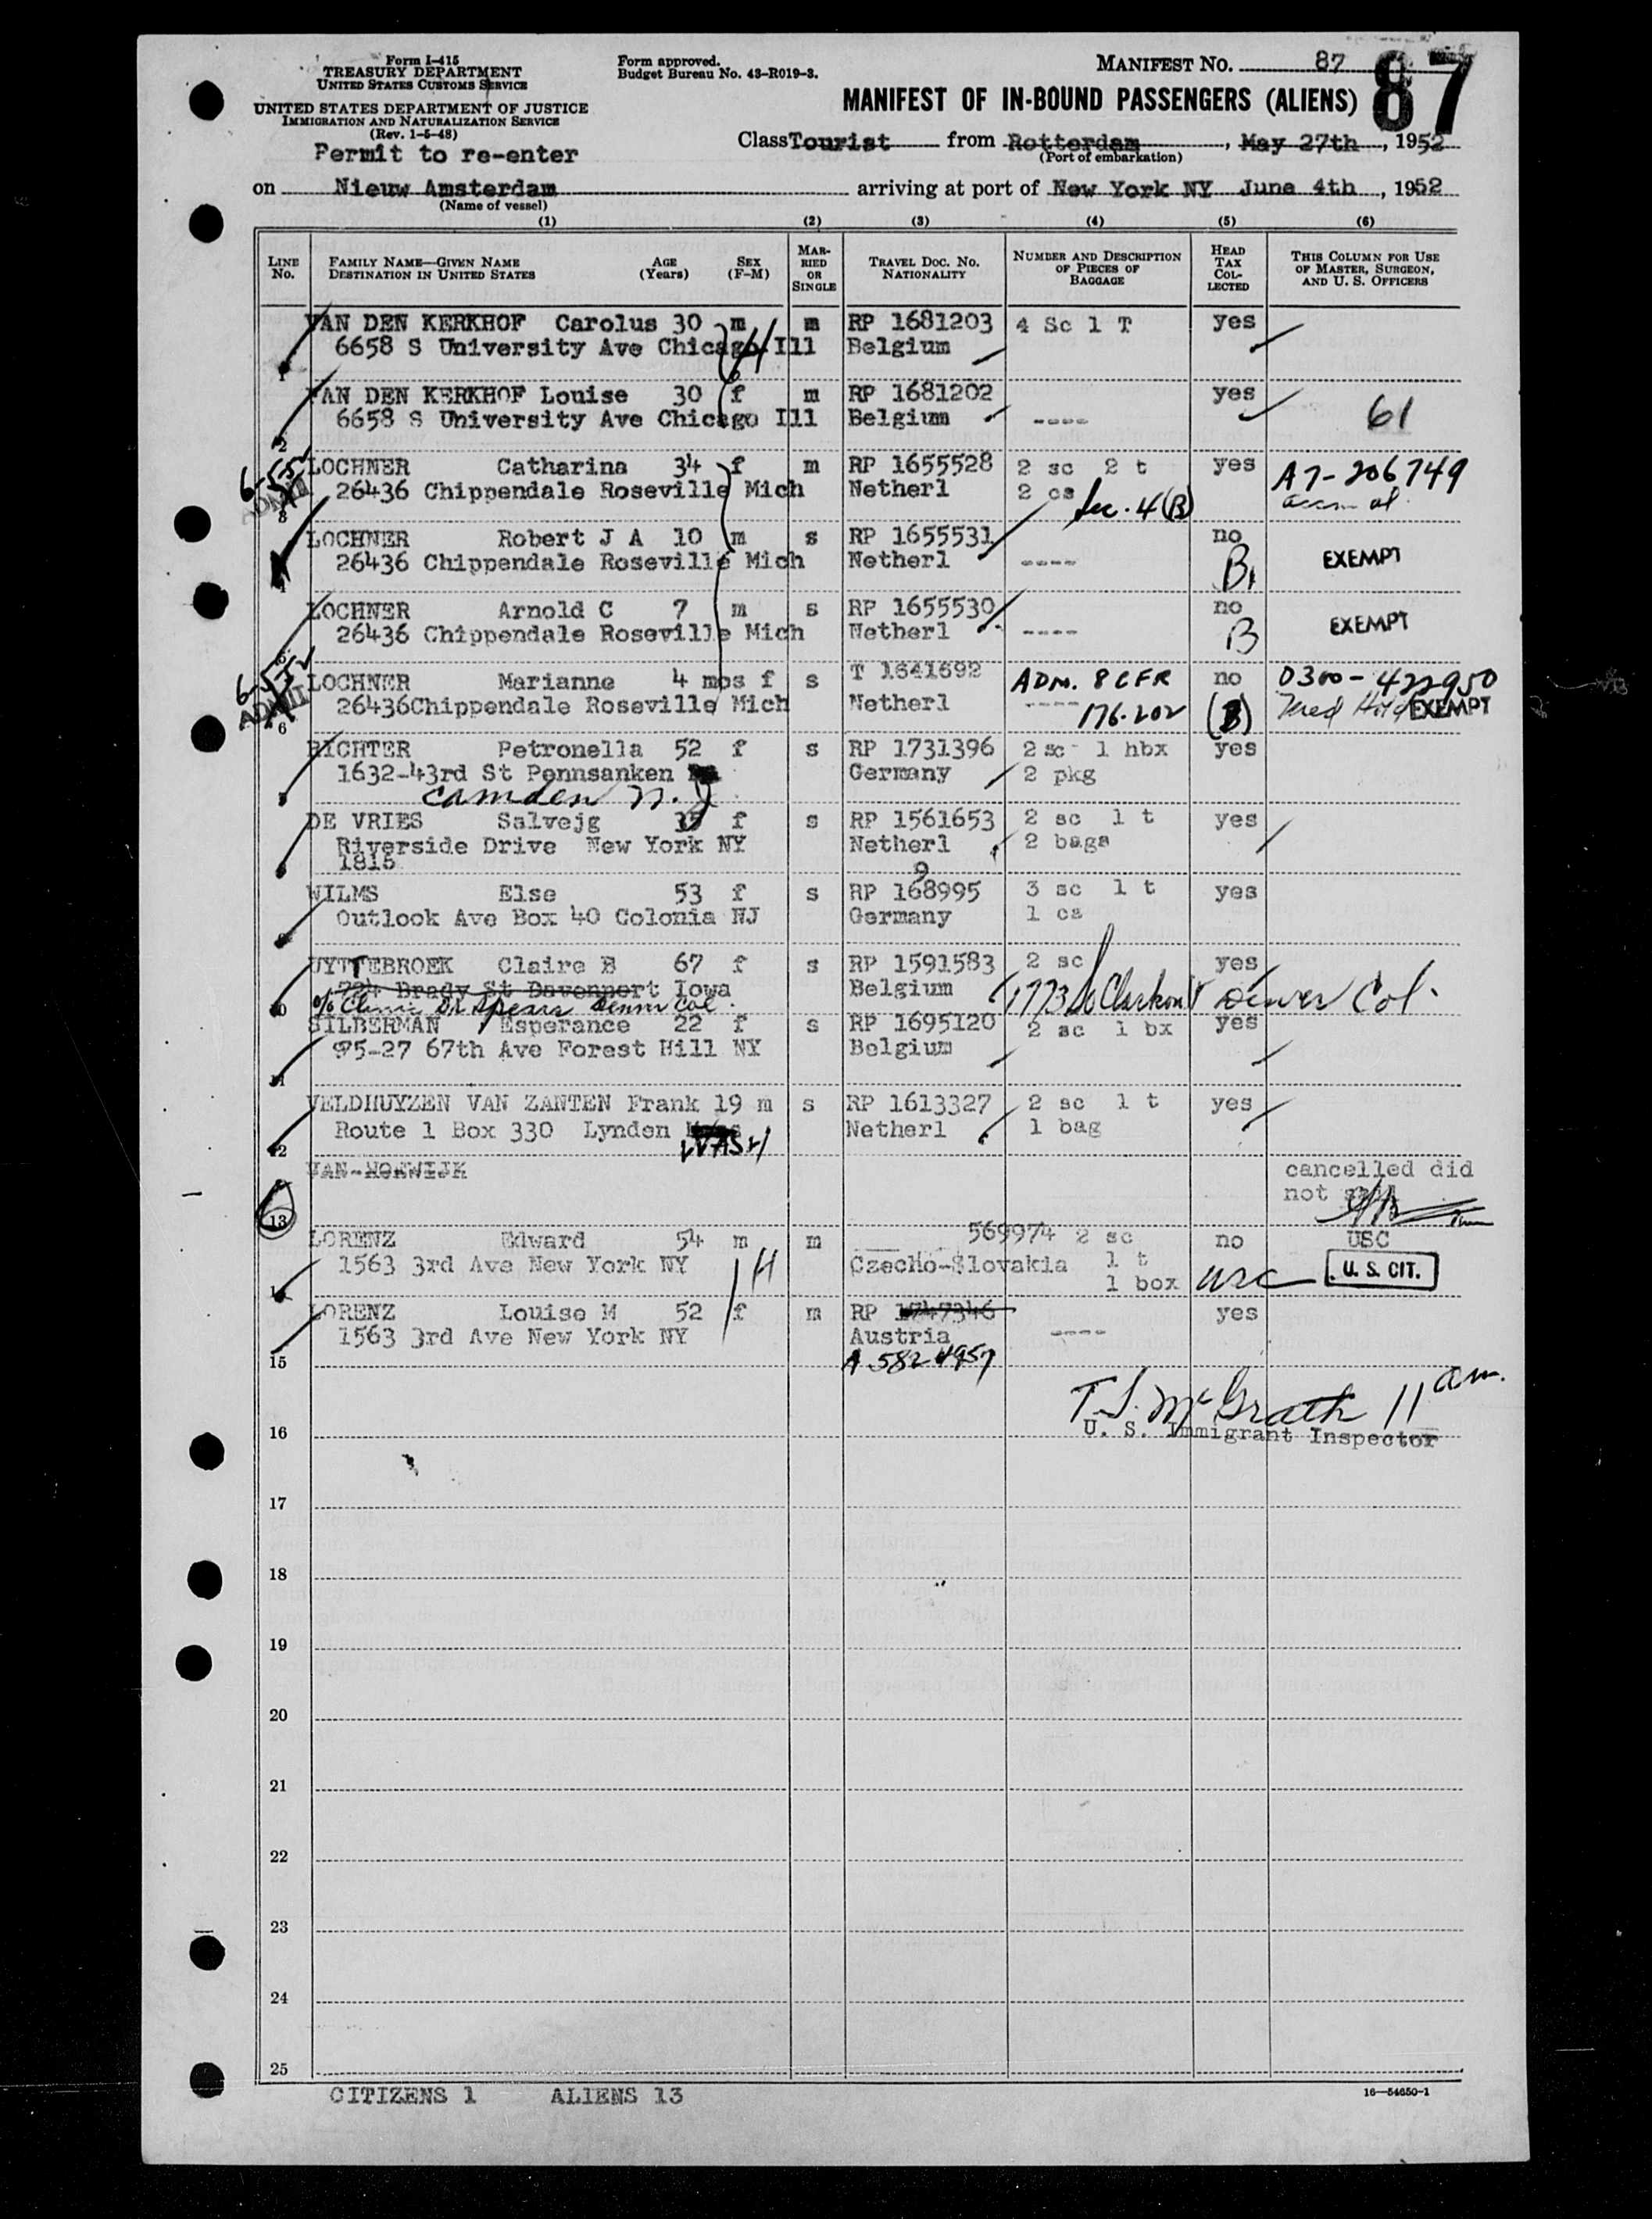 Form I-415
TREASURY DEPARTMENT
UNITED STATES CUSTOMS SERVICE
UNITED STATES DEPARTMENT OF JUSTICE
IMMIGRATION AND NATURALIZATION SERVICE
(Rev. 1-5-48)
Permit to re-enter
Form approved.
Budget Bureau No. 43-R019-3.
MANIFEST NO. 87
87
MANIFEST OF IN-BOUND PASSENGERS (ALIENS)
Class Tourist from Rotterdam, May 27th, 1952
(Port of embarkation)
on Nieuw Amsterdam arriving at port of New York NY June 4th, 1952
(Name of vessel)
(1) (2) (3) (4) (5) (6)
LINE No. FAMILY NAME—GIVEN NAME DESTINATION IN UNITED STATES AGE (Years) SEX (F-M) MARRIED OR SINGLE TRAVEL DOC. NO. NATIONALITY NUMBER AND DESCRIPTION OF PIECES OF BAGGAGE HEAD TAX COLLECTED THIS COLUMN FOR USE OF MASTER, SURGEON, AND U. S. OFFICERS
VAN DEN KERKHOF Carolus 30 m m RP 1681203 4 Sc 1 T yes
1 6658 S University Ave Chicago Ill Belgium
H
VAN DEN KERKHOF Louise 30 f m RP 1681202 yes
2 6658 S University Ave Chicago Ill Belgium ---- 61
LOCHNER Catharina 34 f m RP 1655528 2 sc 2 t yes A7-206749
26436 Chippendale Roseville Mich Netherl 2 cs Sec. 4(B)
LOCHNER Robert J A 10 m s RP 1655531 no
26436 Chippendale Roseville Mich Netherl ---- B EXEMPT
LOCHNER Arnold C 7 m s RP 1655530 no
26436 Chippendale Roseville Mich Netherl ---- B EXEMPT
LOCHNER Marianne 4 mos f s T 1641692 ADM. 8 CFR no 0300-422950
6 26436Chippendale Roseville Mich Netherl ---- 176.202 (B) Med Hold EXEMPT
RICHTER Petronella 52 f s RP 1731396 2 sc 1 hbx yes
1632-43rd St Pennsanken Germany 2 pkg
Camden N.J
DE VRIES Salvejg f s RP 1561653 2 sc 1 t yes
Riverside Drive New York NY Netherl 2 bags
1815
9
WILMS Else 53 f s RP 168995 3 sc 1 t yes
Outlook Ave Box 40 Colonia NJ Germany 1 cs
UYTTEBROEK Claire B 67 f s RP 1591583 2 sc yes
724 Brady St Davenport Iowa Belgium 1773 So Clarkson Denver Col.
c/o Clinic Dr Spears Denver Col.
SILBERMAN Esperance 22 f s RP 1695120 2 sc 1 bx yes
11 95-27 67th Ave Forest Hill NY Belgium
VELDHUYZEN VAN ZANTEN Frank 19 m s RP 1613327 2 sc 1 t yes
12 Route 1 Box 330 Lynden WASH Netherl 1 bag
VAN-NORWIJK cancelled did
not sail
13
LORENZ Edward 54 m m 569974 2 sc no USC
1563 3rd Ave New York NY Czecho-Slovakia 1 t usc U. S. CIT.
H 1 box
LORENZ Louise M 52 f m RP 1747346 yes
1563 3rd Ave New York NY Austria ----
15 A 5824957
T.S. McGrath 11 am.
16 U. S. Immigrant Inspector
17
18
19
20
21
22
23
24
25
CITIZENS 1 ALIENS 13
16—54650-1